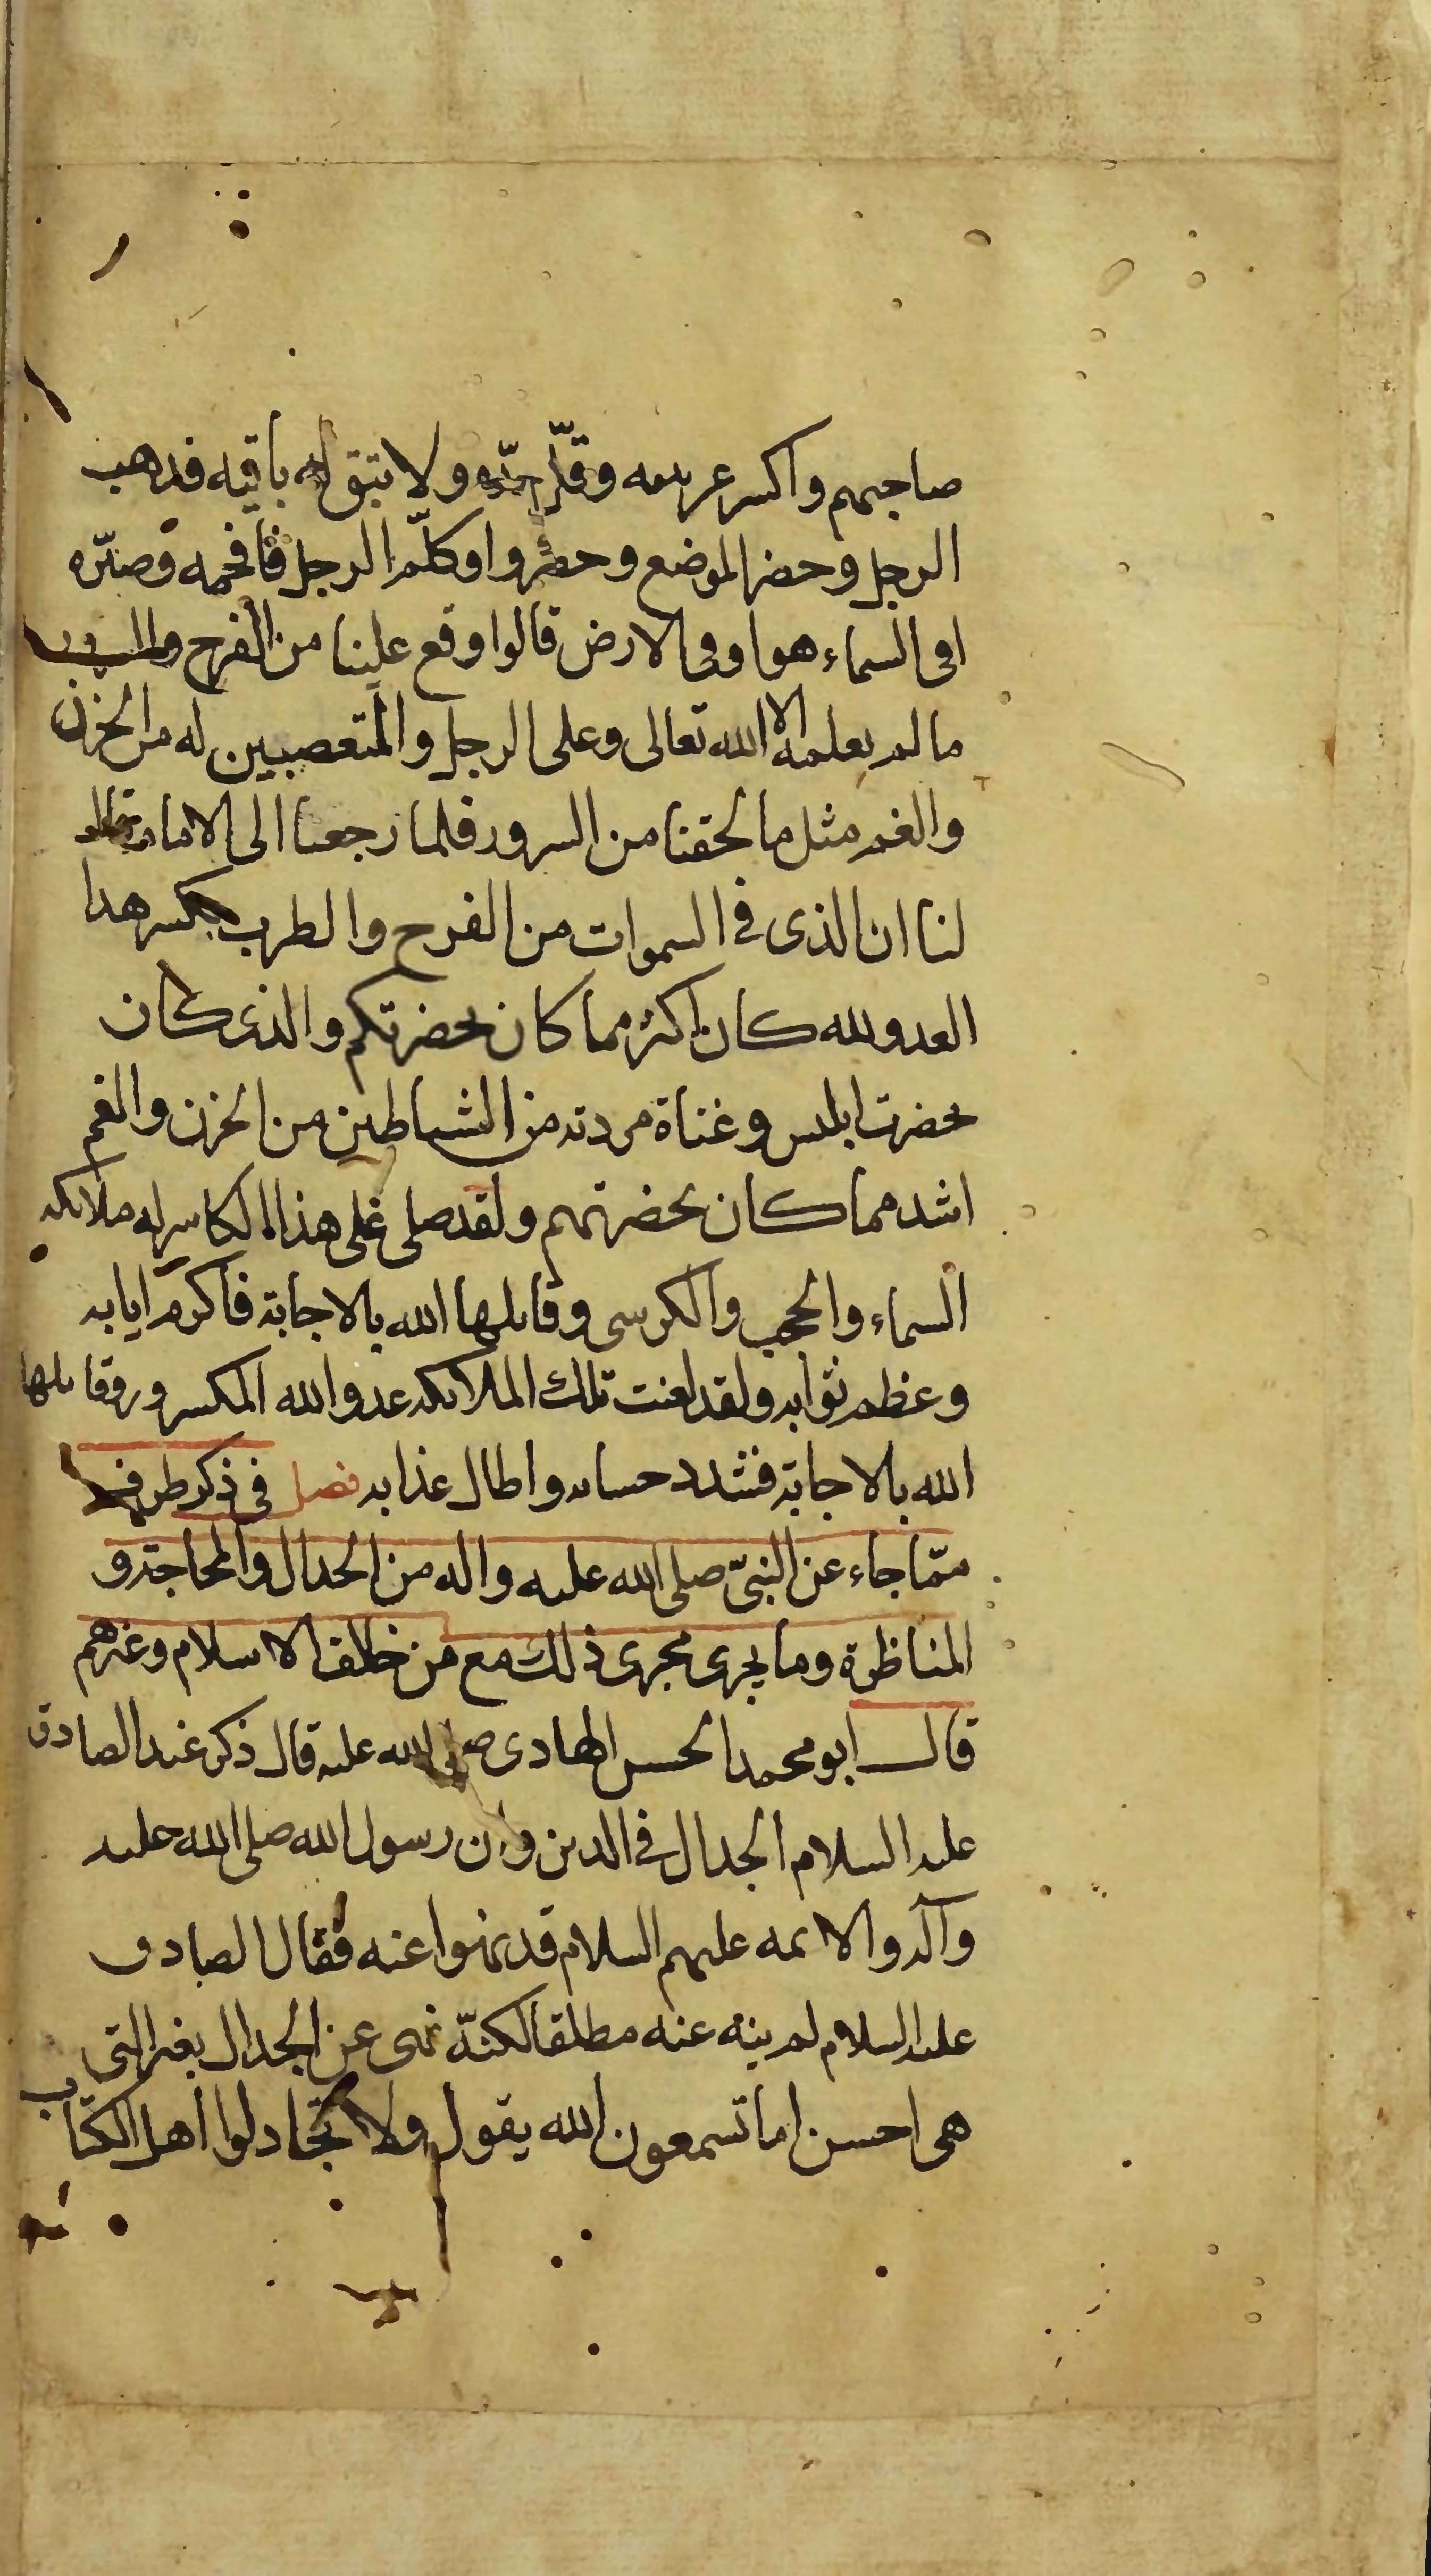 صاحبهم واكسر عربيه وقلّ حدّه ولا تبق له باقيه فذهب
الرجل وحضر الموضع وحضروا وكلّم الرجل فافحمه وصيّره
افى السماء هو او فى الارض قالوا وقع علينا من الفرح والسرور
ما لم يعلمه الا الله تعالى وعلى الرجل والمتعصبين له من الحزن
والغم مثل ما لحقنا من السرور فلما رجعنا الى الامام قال
لنا ان الذى فى السموات من الفرح والطرب بكسر هذا
العدو لله كان اكثر مما كان بحضرتكم والذى كان
بحضرت ابليس وعتاة مردته من الشياطين من الحزن والغم
اشد مما كان بحضرتهم ولقد صلى على هذا الكاسر له ملائكه
السماء والحجب والكرسى وقابلها الله بالاجابة فاكرم ايابه
وعظم ثوابه ولقد لعنت تلك الملائكه عدو الله المكسور وقابلها
الله بالاجابة فشدد حسابه واطال عذابه فصل فى ذكر طرف
ممّا جاء عن النبىّ صلى الله عليه واله من الجدال والمحاجة و
المناظرة وما يجرى مجرى ذلك مع من خالف الاسلام وغيرهم
قال ابو محمد الحسن الهادى صلى الله عليه قال ذكر عند الصادق
عليه السلام الجدال فى الدين وان رسول الله صلى الله عليه
وآله والائمه عليهم السلام قد نهوا عنه فقال الصادق
عليه السلام لم ينه عنه مطلقا لكنّه نهى عن الجدال بغير التى
هى احسن اما تسمعون الله يقول ولا تجادلوا اهل الكتاب